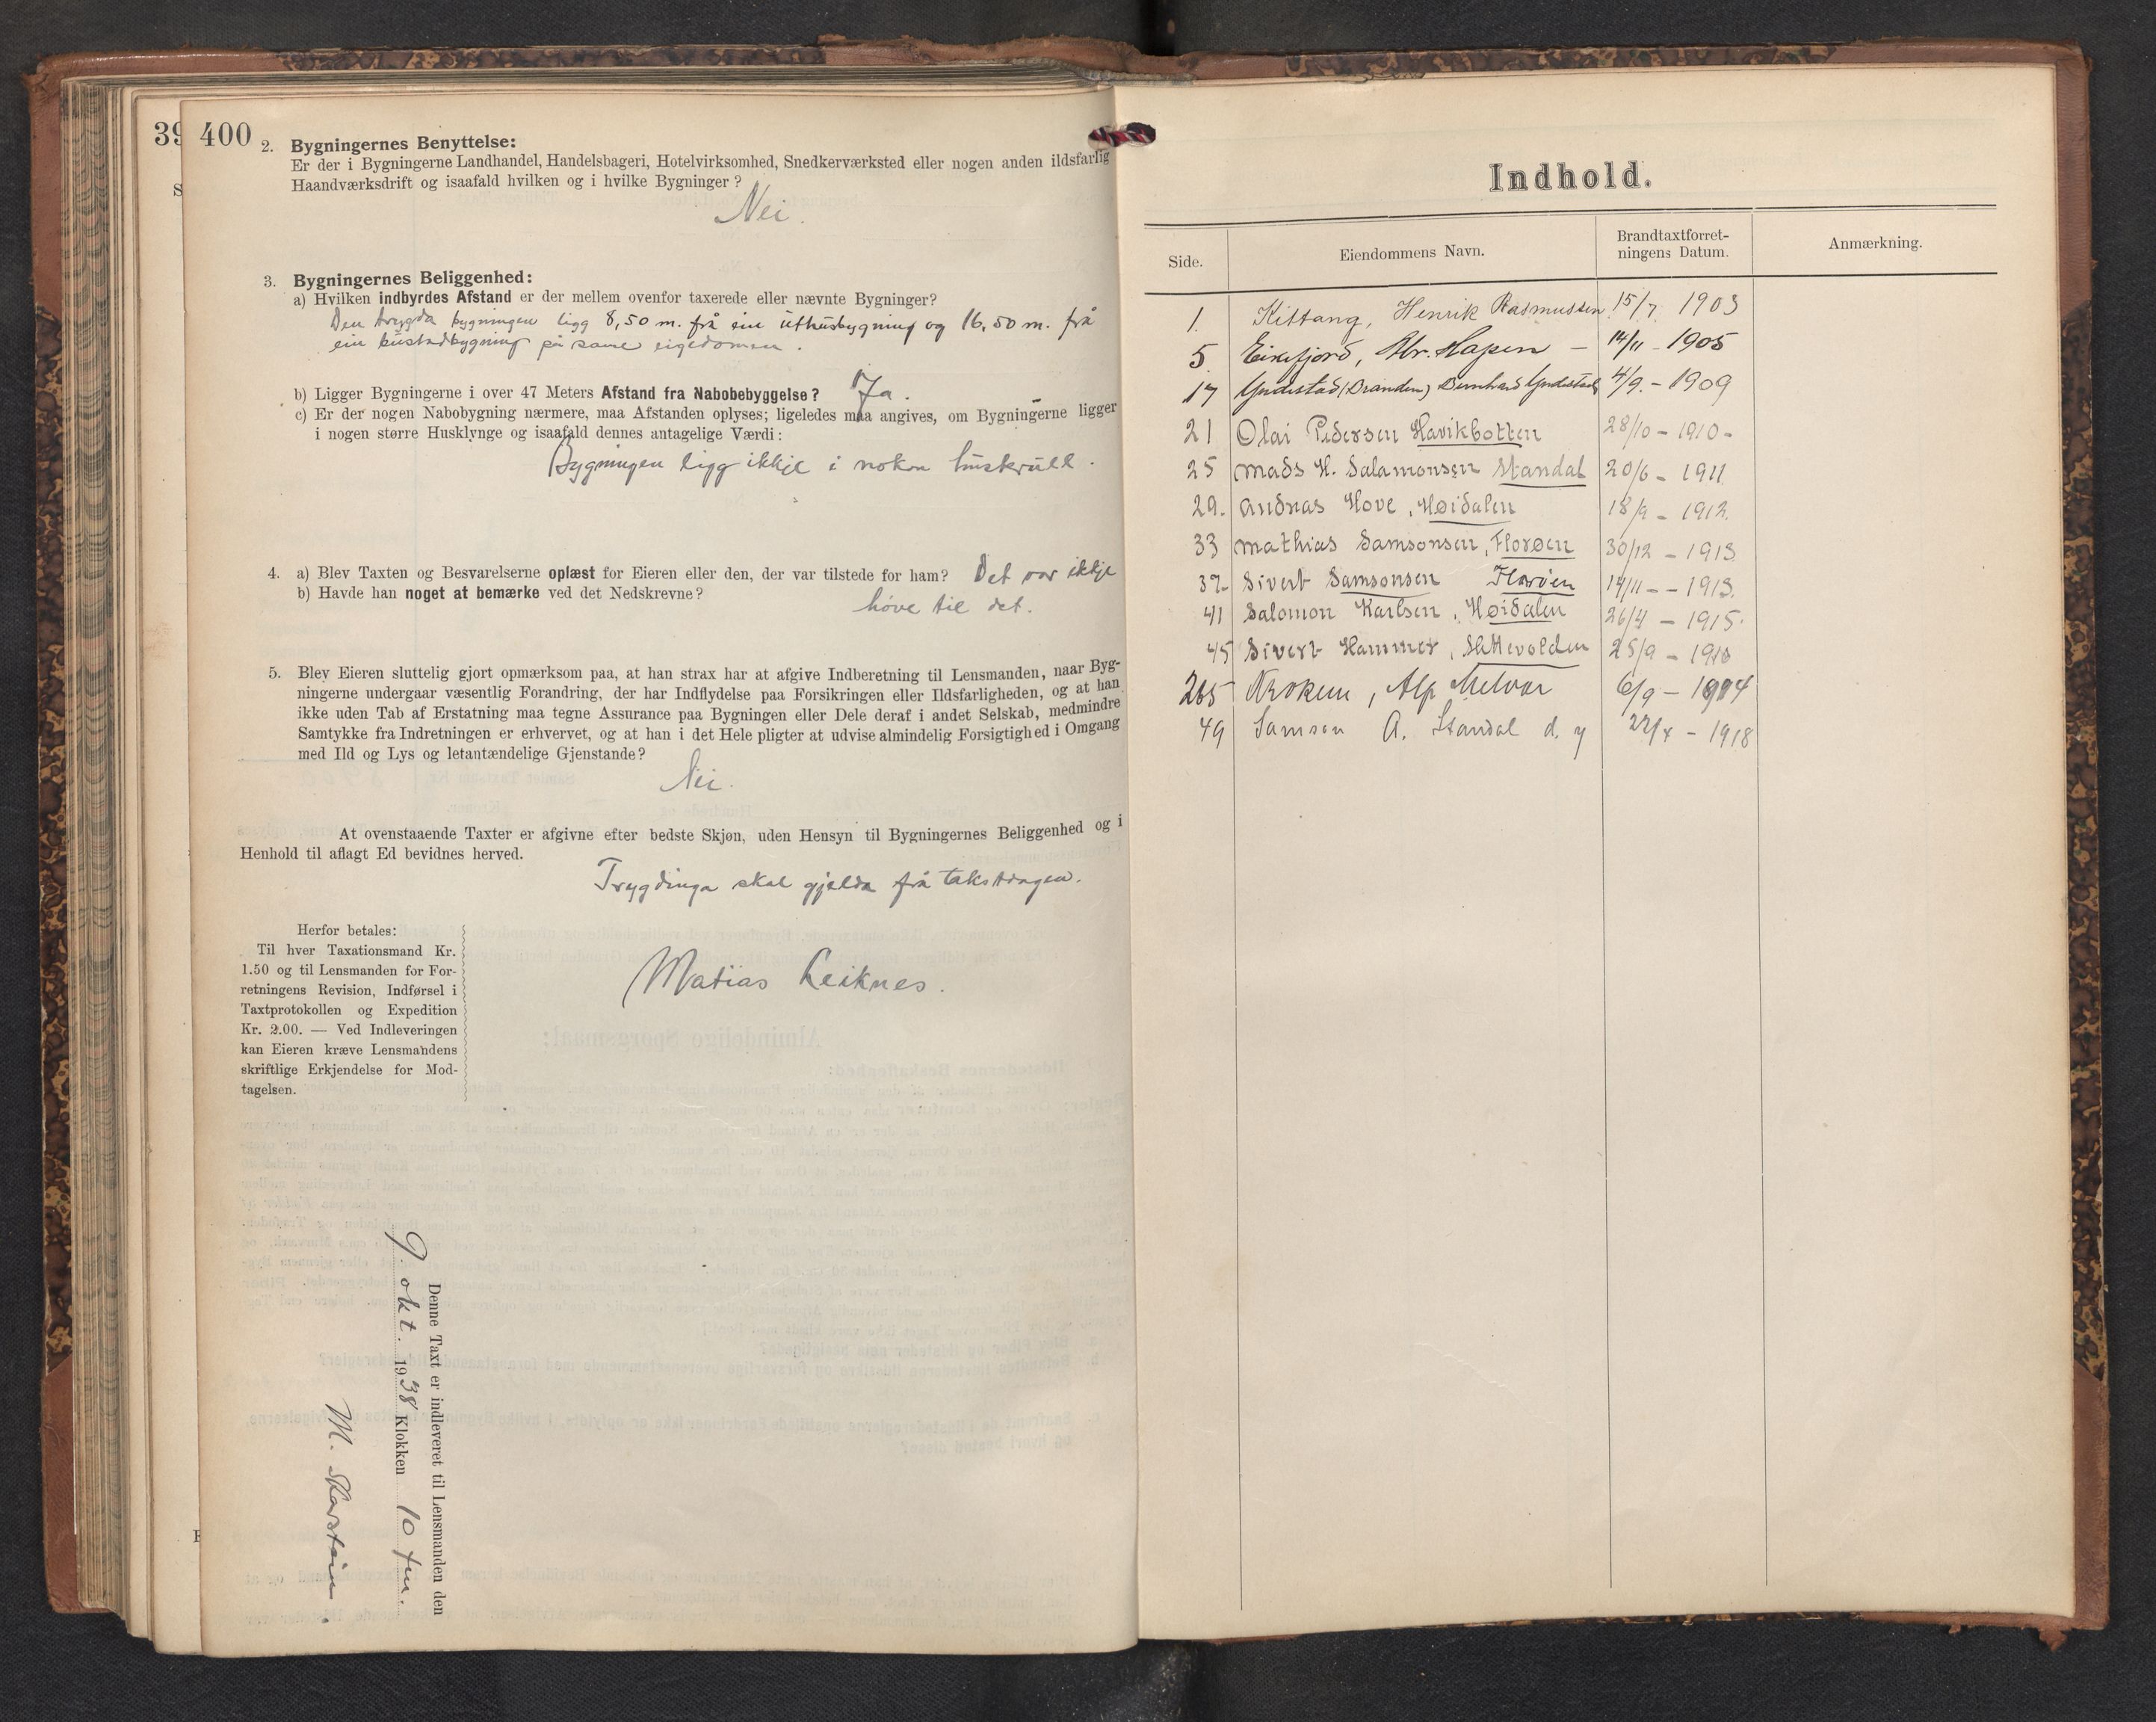 39
400
2. Bygningernes Benyttelse:
Er der i Bygningerne Landhandel, Handelsbageri, Hotelvirksomhed, Snedkerværksted eller nogen anden ildsfarlig
Haandværksdrift og isaafald hvilken og i hvilke Bygninger?
Nei.
3. Bygningernes Beliggenhed:
a) Hvilken indbyrdes Afstand er der mellem ovenfor taxerede eller nævnte Bygninger?
Den trygda bygningen ligg 8,50 m. frå ein uthusbygning og 16,50 m. frå
ein bustadbygning på same eigedomen.
b) Ligger Bygningerne i over 47 Meters Afstand fra Nabobebyggelse? Ja.
c) Er der nogen Nabobygning nærmere, maa Afstanden oplyses; ligeledes maa angives, om Bygningerne ligger
i nogen større Husklynge og isaafald dennes antagelige Værdi:
Bygningen ligg ikkje i nokon huskrull.
4. a) Blev Taxten og Besvarelserne oplæst for Eieren eller den, der var tilstede for ham? Det var ikkje
b) Havde han noget at bemærke ved det Nedskrevne? høve til det.
5. Blev Eieren sluttelig gjort opmærksom paa, at han strax har at afgive Indberetning til Lensmanden, naar Byg-
ningerne undergaar væsentlig Forandring, der har Indflydelse paa Forsikringen eller Ildsfarligheden, og at han
ikke uden Tab af Erstatning maa tegne Assurance paa Bygningen eller Dele deraf i andet Selskab, medmindre
Samtykke fra Indretningen er erhvervet, og at han i det Hele pligter at udvise almindelig Forsigtighed i Omgang
med Ild og Lys og letantændelige Gjenstande?
Nei.
At ovenstaaende Taxter er afgivne efter bedste Skjøn, uden Hensyn til Bygningernes Beliggenhed og i
Henhold til aflagt Ed bevidnes herved.
Trygdinga skal gjelda frå takstdagen.
Herfor betales:
Til hver Taxationsmand Kr.
1.50 og til Lensmanden for For-
retningens Revision, Indførsel i
Taxtprotokollen og Expedition
Kr. 2.00. — Ved Indleveringen
kan Eieren kræve Lensmandens
skriftlige Erkjendelse for Mod-
tagelsen.
Matias Leiknes.
Denne Taxt er indleveret til Lensmanden den
9. okt. 1938 Klokken 10 fm.
M. Starstein.
Indhold.
Side. Eiendommens Navn. Brandtaxtforret- Anmærkning.
ningens Datum.
1. Kittang, Henrik Rasmussen 15/7. 1903
5 Eikefjord, Abr. Hapen — 14/11 - 1905
17 Yndestad (Dranden) Bernhard Yndestad 4/9. - 1909
21 Olai Pedersen Havikbotten 28/10 - 1910 -
25 Mads H. Salamonsen Standal 20/6 - 1911
29. Andreas Hove, Høidalen 18/9 - 1912.
33 Mathias Samsonsen, Florøen 30/12 - 1913
37 Sivert Samsonsen Florøen 14/11 - - 1913.
41 Salomon Karlsen, Høidalen 26/4 - 1915.
45 Sivert Hammer, 25/9 -
265 Krokene, Alf Melvær 6/9 -
49 Samson A. Standal d. y 22/4 - 1918